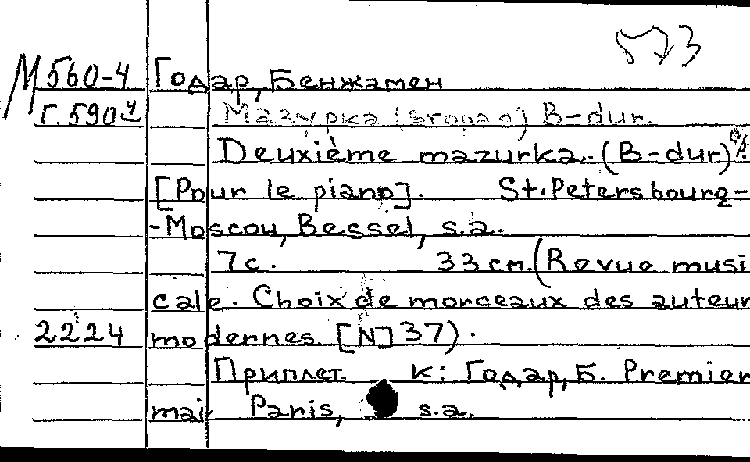 573
М 560-4 Годар, Бенжамен
Г. 590 Мазурка (вторая) B-dur.
Deuxième mazurka. (B-dur)
[Pour le piano]. St.Petersbourg-
-Moscou, Bessel, s.a.
7 с. 33 см. (Revue musi
cale. Choix de morceaux des auteur
2224 modernes. [N] 37).
Приплет. к: Годар, Б. Premier
mai Paris, s.a.